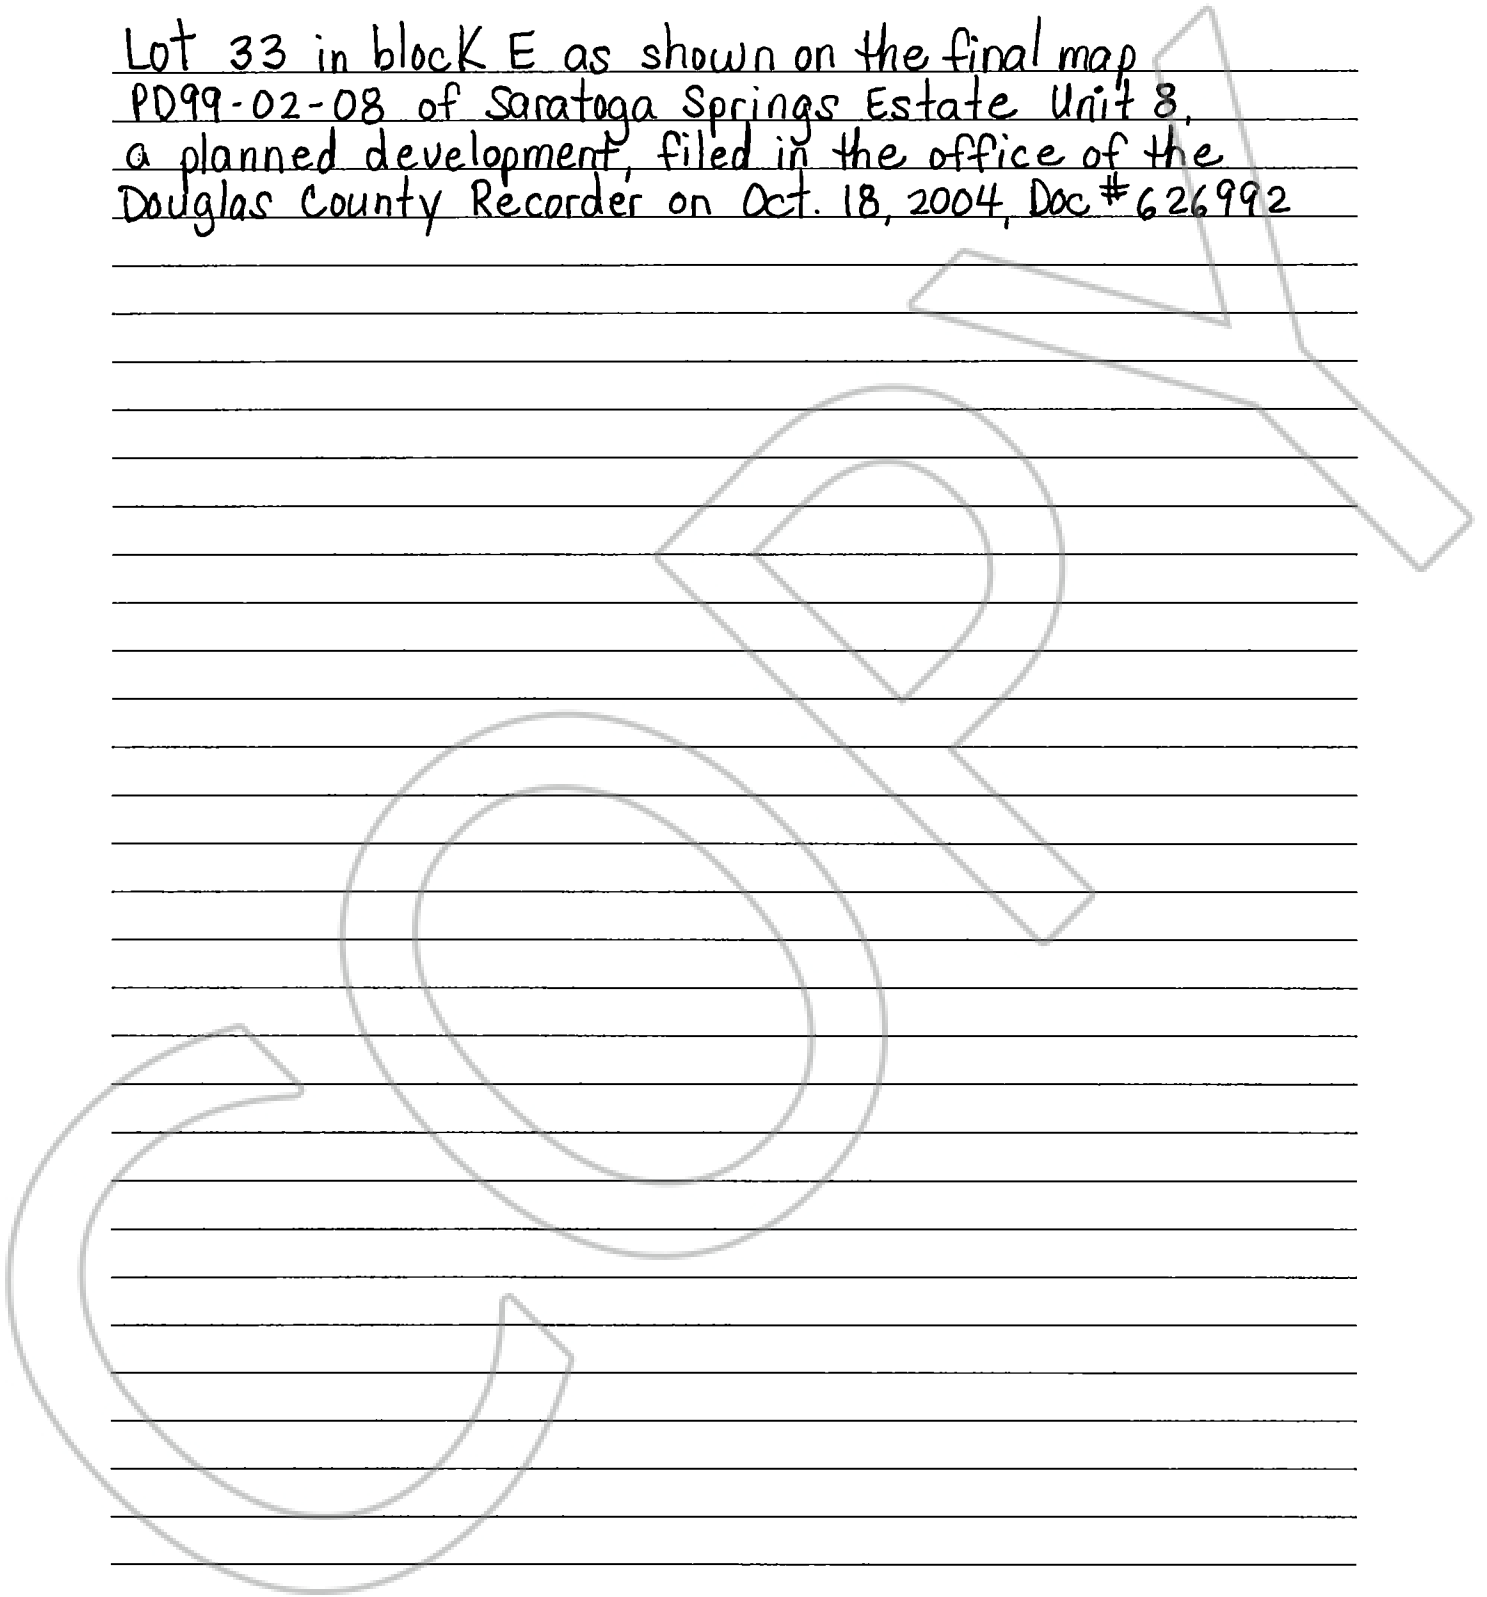 Lot 33 in block E as shown on the final map
PD99-02-08 of Saratoga Springs Estate Unit 8,
a planned development, filed in the office of the
Douglas County Recorder on Oct. 18, 2004, Doc # 626992
COPY